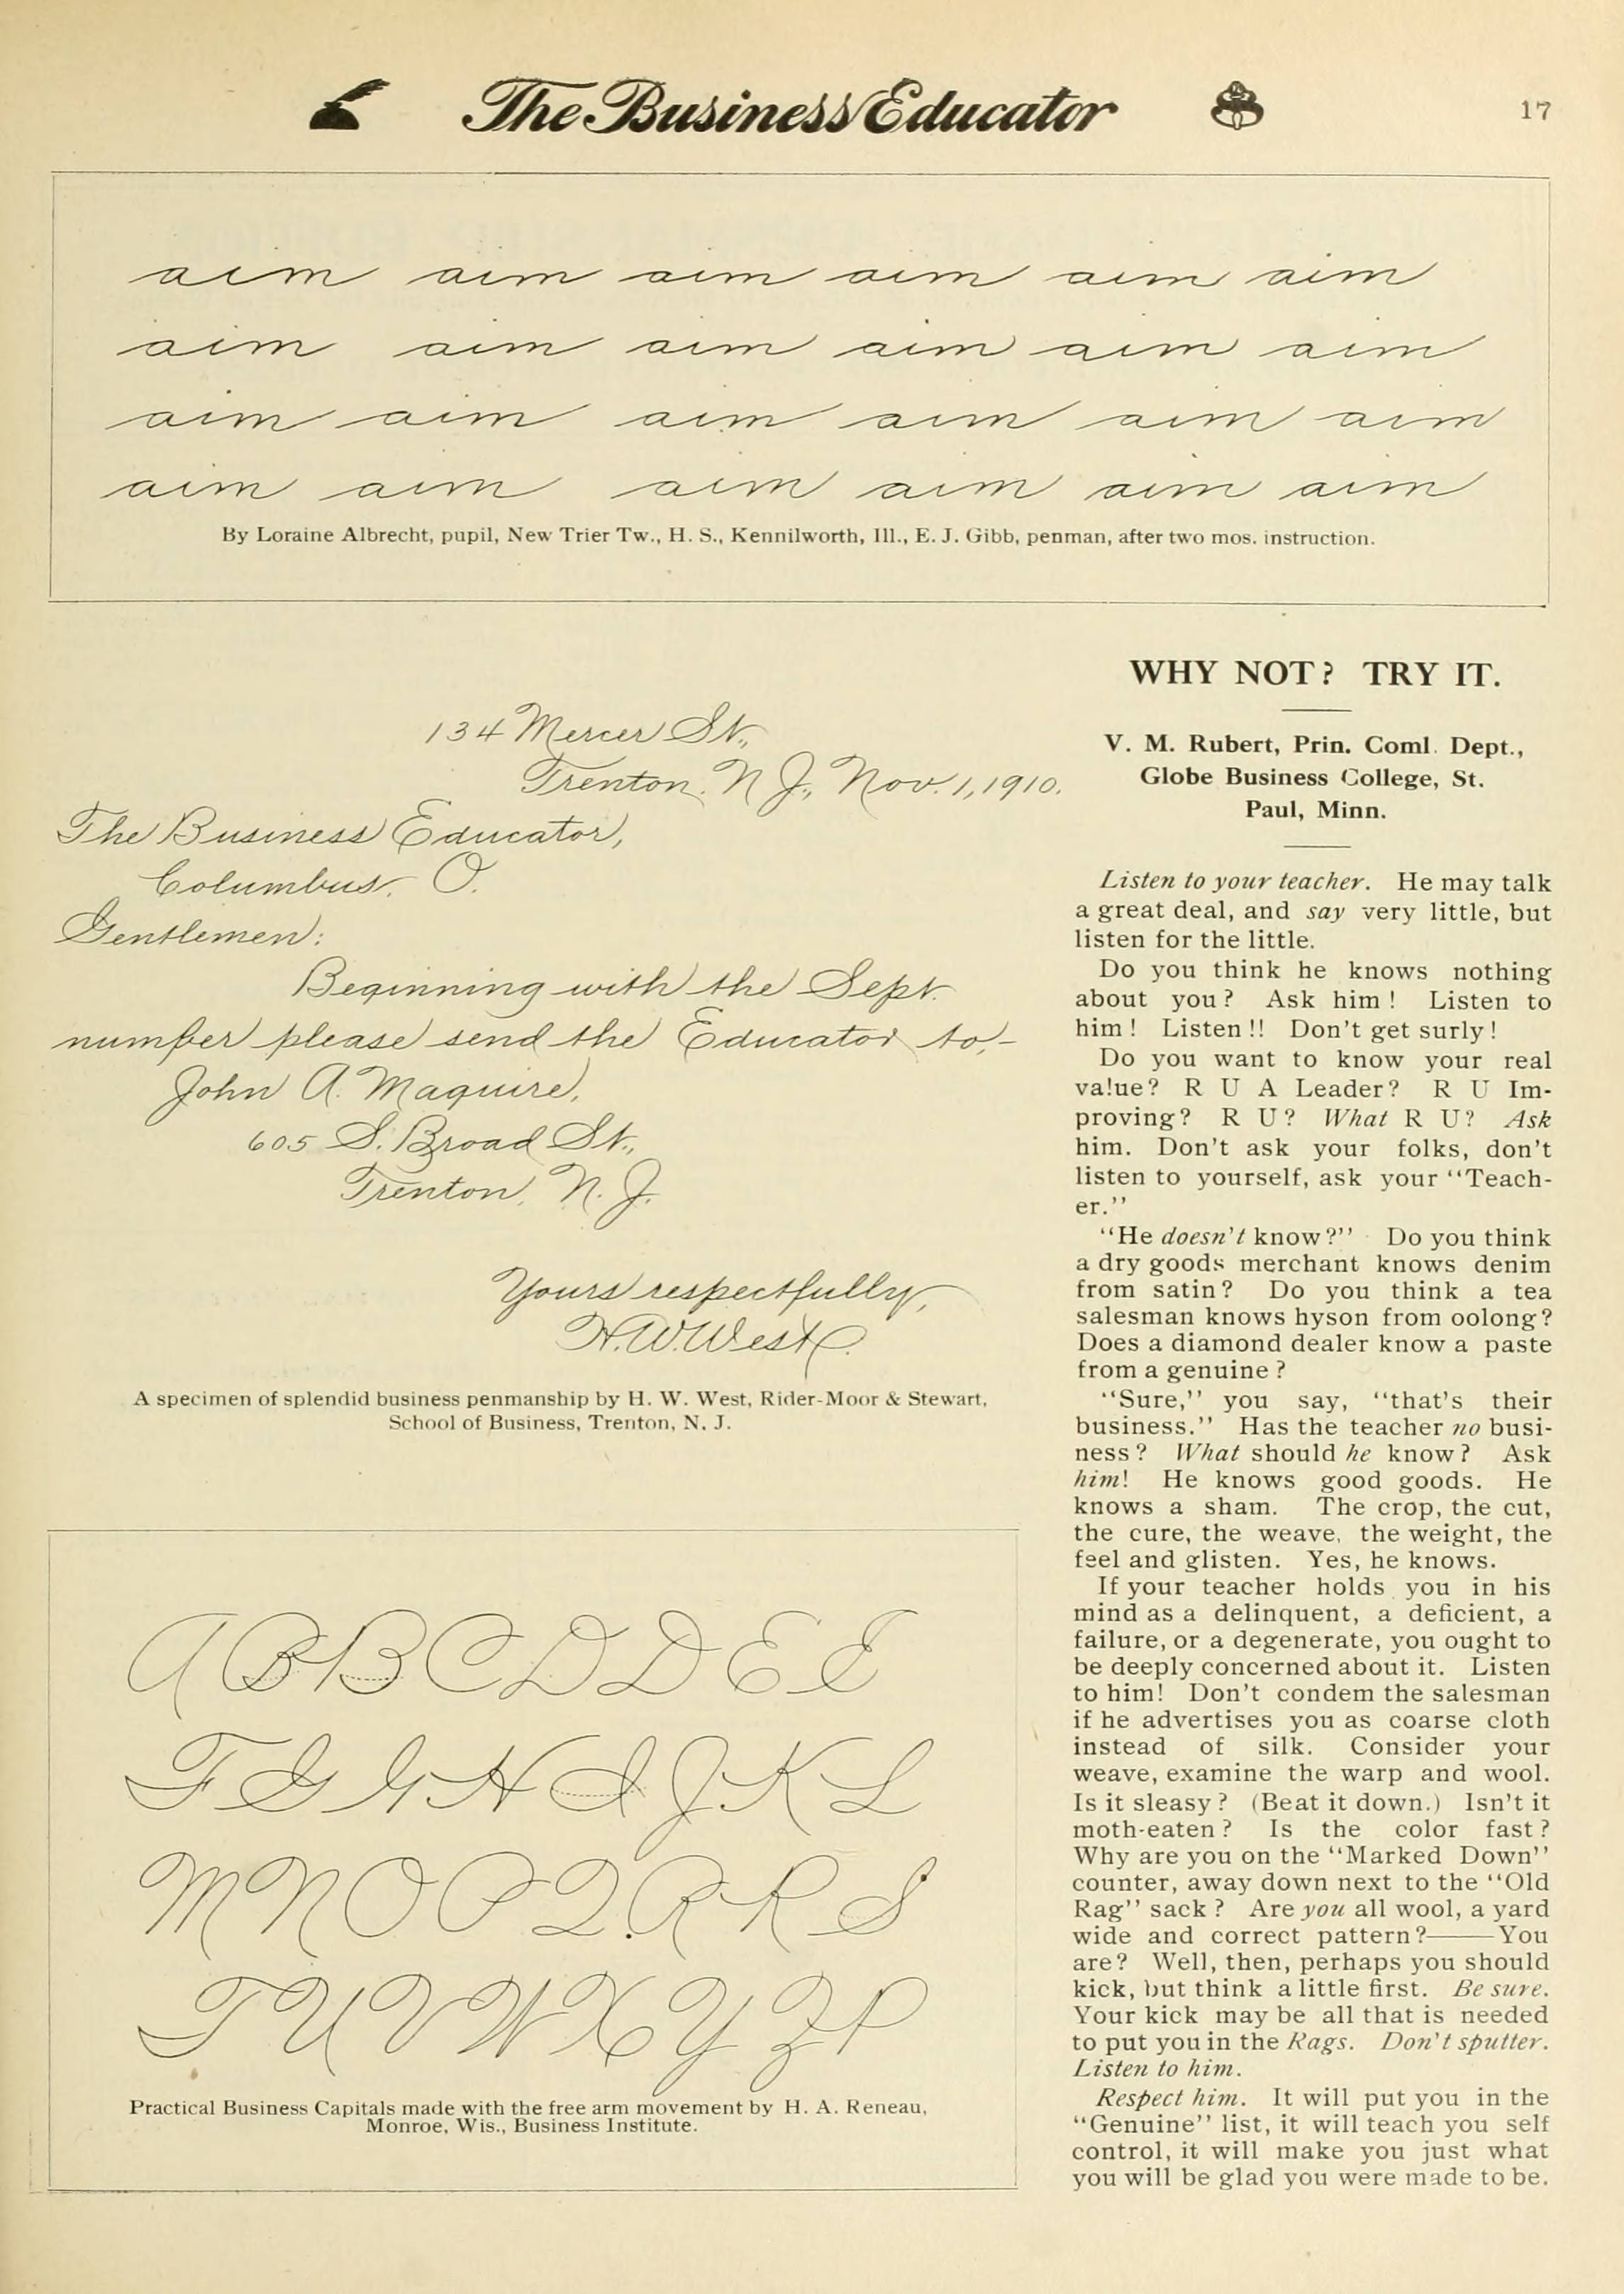 The Business Educator
17
aim aim aim aim aim aim
aim aim aim aim aim aim
aim aim aim aim aim aim
aim aim aim aim aim aim
By Loraine Albrecht, pupil, New Trier Tw., H. S., Kennilworth, Ill., E. J. Gibb, penman, after two mos. instruction.
134 Mercer St.,
Trenton, N. J., Nov. 1, 1910.
The Business Educator,
Columbus, O.
Gentlemen:
Beginning with the Sept.
number please send the Educator to,-
John A. Maguire,
605 S. Broad St.,
Trenton, N. J.
Yours respectfully,
H. W. West.
A specimen of splendid business penmanship by H. W. West, Rider-Moor & Stewart,
School of Business, Trenton, N. J.
A B B C D D E E
F G G H I J K L
M N O P Q R R S
T U V W X Y Z P
Practical Business Capitals made with the free arm movement by H. A. Reneau,
Monroe, Wis., Business Institute.
WHY NOT? TRY IT.
V. M. Rubert, Prin. Coml. Dept.,
Globe Business College, St.
Paul, Minn.
Listen to your teacher. He may talk
a great deal, and say very little, but
listen for the little.
Do you think he knows nothing
about you? Ask him! Listen to
him! Listen!! Don't get surly!
Do you want to know your real
value? R U A Leader? R U Im-
proving? R U? What R U? Ask
him. Don't ask your folks, don't
listen to yourself, ask your "Teach-
er."
"He doesn't know?" Do you think
a dry goods merchant knows denim
from satin? Do you think a tea
salesman knows hyson from oolong?
Does a diamond dealer know a paste
from a genuine?
"Sure," you say, "that's their
business." Has the teacher no busi-
ness? What should he know? Ask
him! He knows good goods. He
knows a sham. The crop, the cut,
the cure, the weave, the weight, the
feel and glisten. Yes, he knows.
If your teacher holds you in his
mind as a delinquent, a deficient, a
failure, or a degenerate, you ought to
be deeply concerned about it. Listen
to him! Don't condem the salesman
if he advertises you as coarse cloth
instead of silk. Consider your
weave, examine the warp and wool.
Is it sleasy? (Beat it down.) Isn't it
moth-eaten? Is the color fast?
Why are you on the "Marked Down"
counter, away down next to the "Old
Rag" sack? Are you all wool, a yard
wide and correct pattern?——You
are? Well, then, perhaps you should
kick, but think a little first. Be sure.
Your kick may be all that is needed
to put you in the Rags. Don't sputter.
Listen to him.
Respect him. It will put you in the
"Genuine" list, it will teach you self
control, it will make you just what
you will be glad you were made to be.